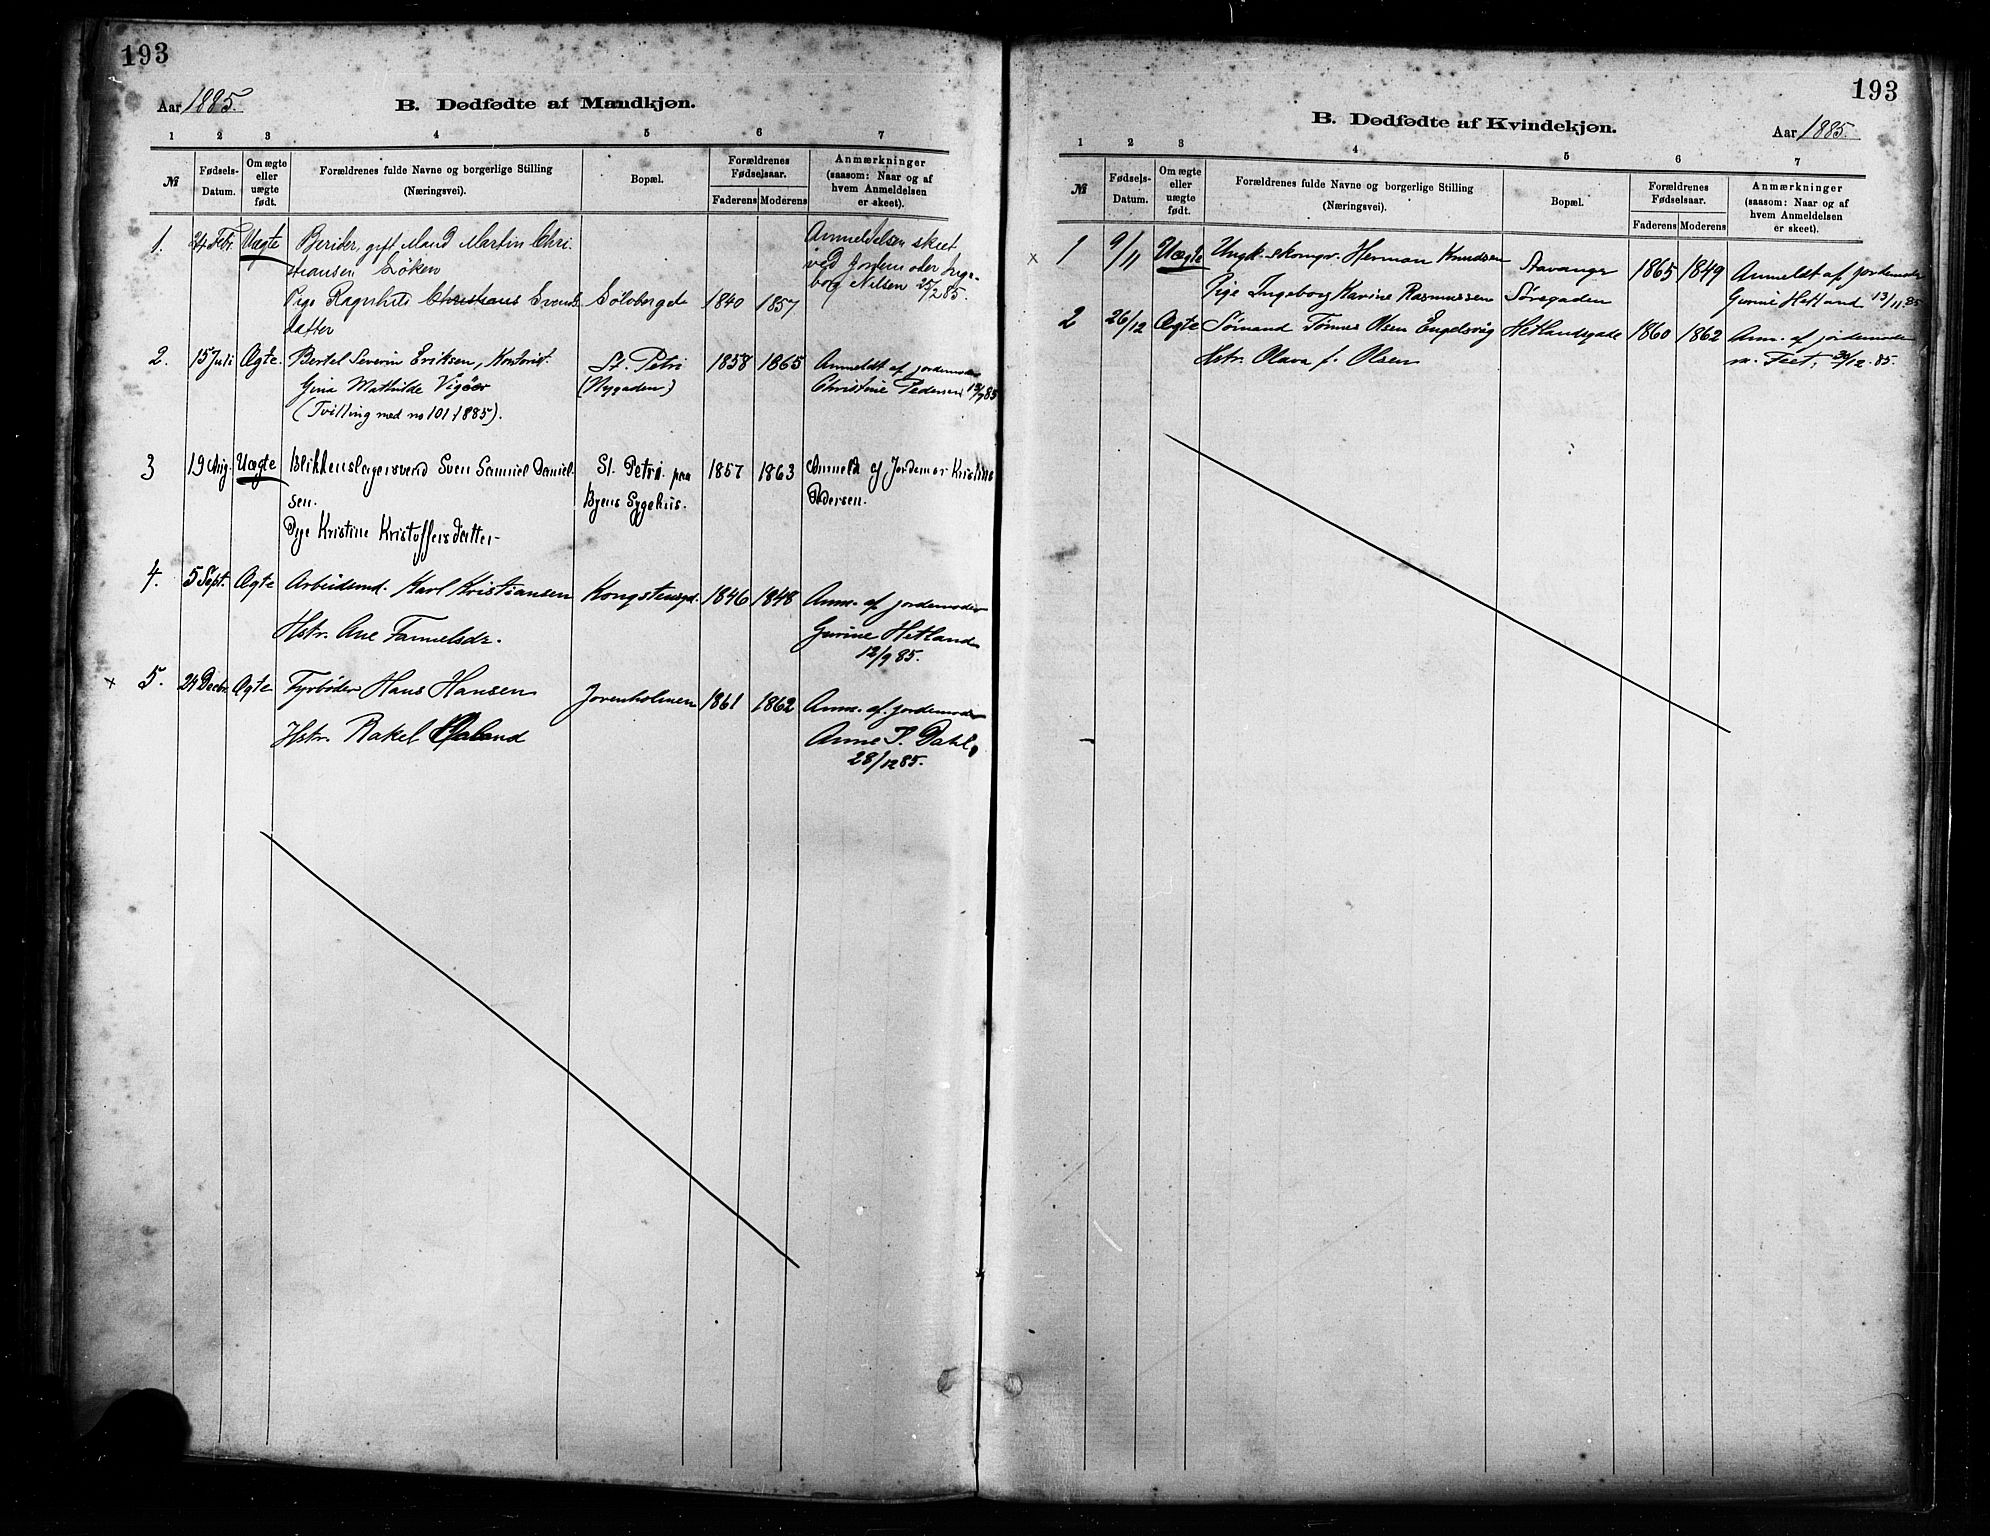 193
Aar 1885.
B. Dødfødte af Mandkjøn.
1 2 3 4 5 6 7
№
Fødsels-
Datum.
Om ægte
eller
uægte
født.
Forældrenes fulde Navne og borgerlige Stilling
(Næringsvei).
Bopæl.
Forældrenes
Fødselsaar.
Faderens Moderens
Anmærkninger
(saasom: Naar og af
hvem Anmeldelsen
er skeet).
1. 24 Febr. Uægte Berider, gift Mand Martin Chri-
stiansen Løken
Pige Ragnhild Christians Svends-
datter
Sølvbergsgt 1840 1857
Anmeldelsen skeet
ved Jordemoder Inge-
borg Nilsen 25/2 85.
2. 15 Juli Ægte Bertel Severin Eriksen, Kontorist.
Gina Mathilde Vigøer
(Tvilling med no 101 1885).
St. Petri
(Nygaden)
1858 1865
Anmeldt af jordemoder
Christine Pedersen 18/7 85
3 19 Aug. Uægte Blikkenslagersvend Sven Samuel Daniel-
sen.
Pige Kristine Kristoffersdatter-
St. Petri paa
Byens Sygehus.
1857 1863
Anmeld af Jordemor Kristine
Pedersen.
4. 5 Sept. Ægte Arbeidsmd. Karl Kristiansen
Hstr. Ane Tamuelsdr.
Kongsteinsgd. 1846 1848
Anm. af jordemoder
Gurine Hetland
12/9 85.
x 5. 24 Decbr. Ægte Fyrbøder Hans Hansen
Hstr. Rakel Aaland
Jorenholmen 1861 1862
Anm. af jordemoder
Anne P. Dahl,
28/12 85.
193
B. Dødfødte af Kvindekjøn.
Aar 1885.
1 2 3 4 5 6 7
№
Fødsels-
Datum.
Om ægte
eller
uægte
født.
Forældrenes fulde Navne og borgerlige Stilling
(Næringsvei).
Bopæl.
Forældrenes
Fødselsaar.
Faderens Moderens
Anmærkninger
(saasom: Naar og af
hvem Anmeldelsen
er skeet).
x 1 9/11 Uægte Ungk. Herman Knudsen
Pige Ingeborg Karine Rasmussen
Stavanger
Søregaden
1865 1849
Anmeldt af jordemoder
Gurine Hetland 13/11 85
2 26/12 Ægte Sømand Tønnes Olsen Engelsvåg
Hstr. Olava f. Olsen
Hetlandsgade 1860 1862
Anm. af jordemoder
m. Feet, 30/12 85.